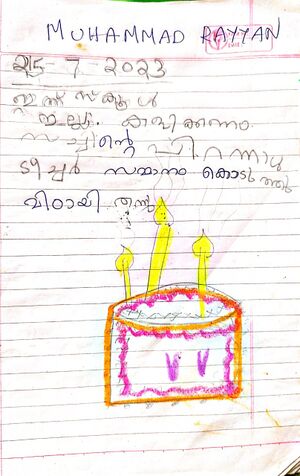 MUHAMMAD RAYYAN
25-7-2023
ഇന്ന് സ്കൂൾ
ഇല്ല.
സച്ചിന്റെ പിറന്നാൾ
ടീച്ചർ സമ്മാനം കൊടുത്തു
മിഠായി തന്നു